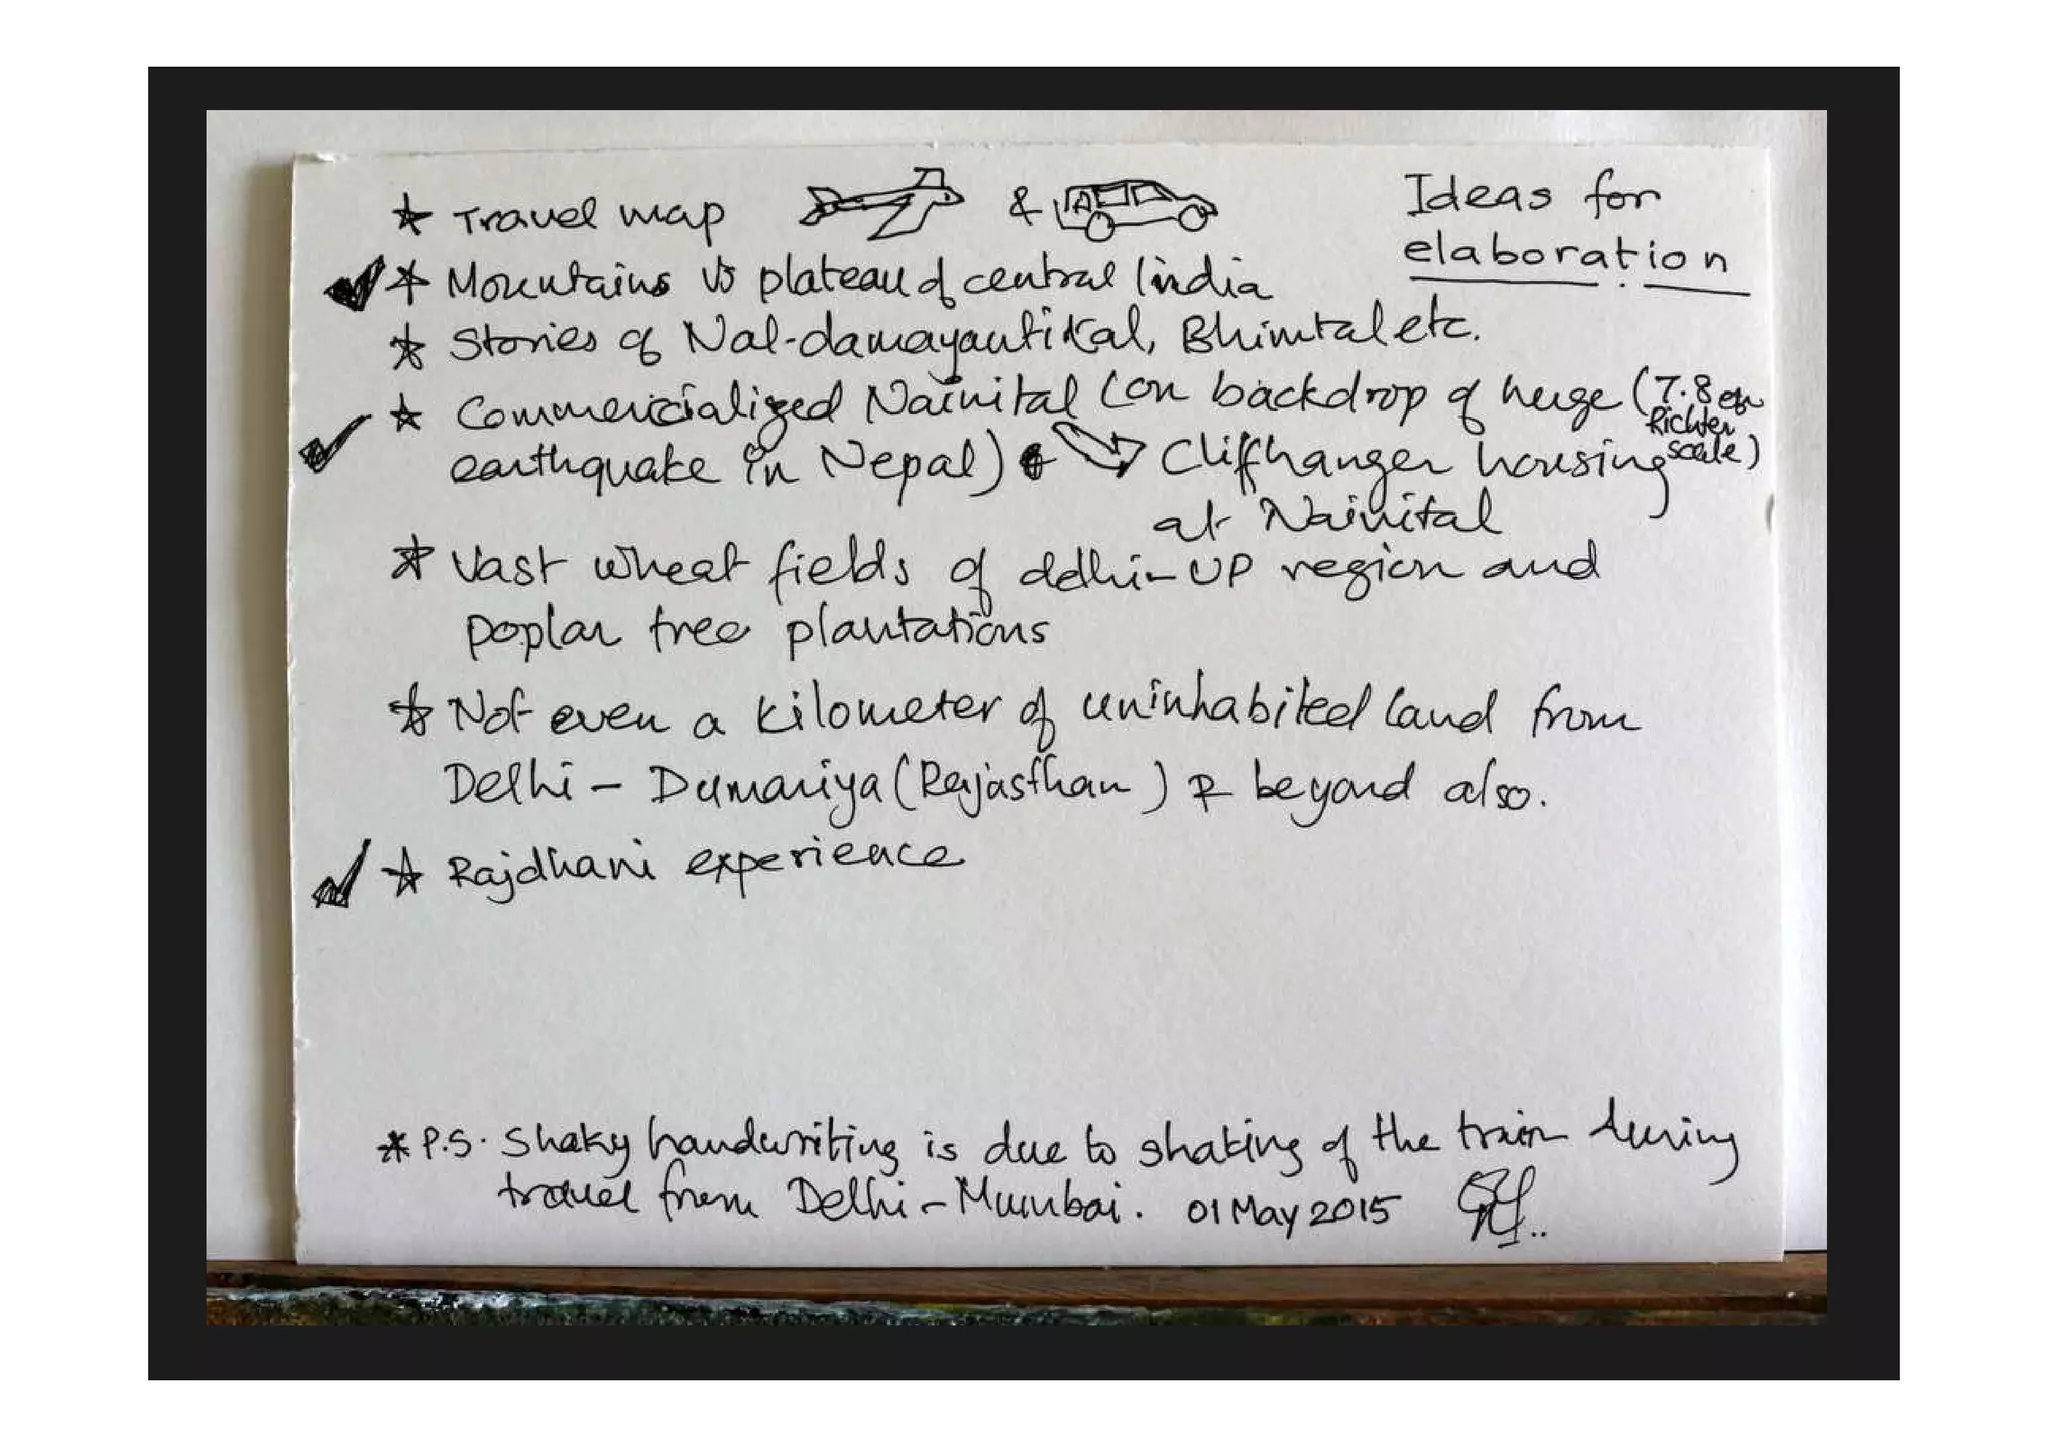 Ideas for
elaboration
* Travel map & A
* Mountains vs plateau of central India
* Stories of Nal-damayantital, Bhimtal etc.
* Commercialized Nainital (on backdrop of huge (7.8 on
Richter
scale)
earthquake in Nepal) & Cliffhanger housing
at Nainital
* Vast wheat fields of delhi-UP region and
poplar tree plantations
* Not even a kilometer of uninhabited land from
Delhi - Dumariya (Rajasthan) & beyond also.
* Rajdhani experience
* P.S. Shaky handwriting is due to shaking of the train during
travel from Delhi-Mumbai. 01 May 2015